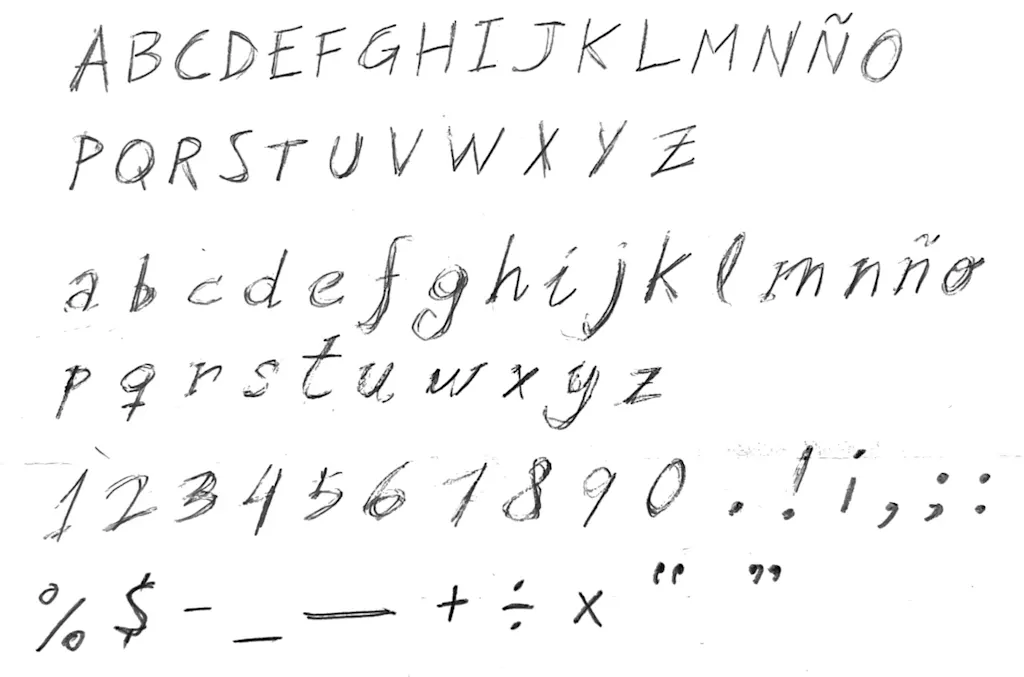 A B C D E F G H I J K L M N Ñ O
P Q R S T U V W X Y Z
a b c d e f g h i j k l m n ñ o
p q r s t u w x y z
1 2 3 4 5 6 7 8 9 0 . ! ¡ , ; :
% $ - _ — + ÷ x “ ”